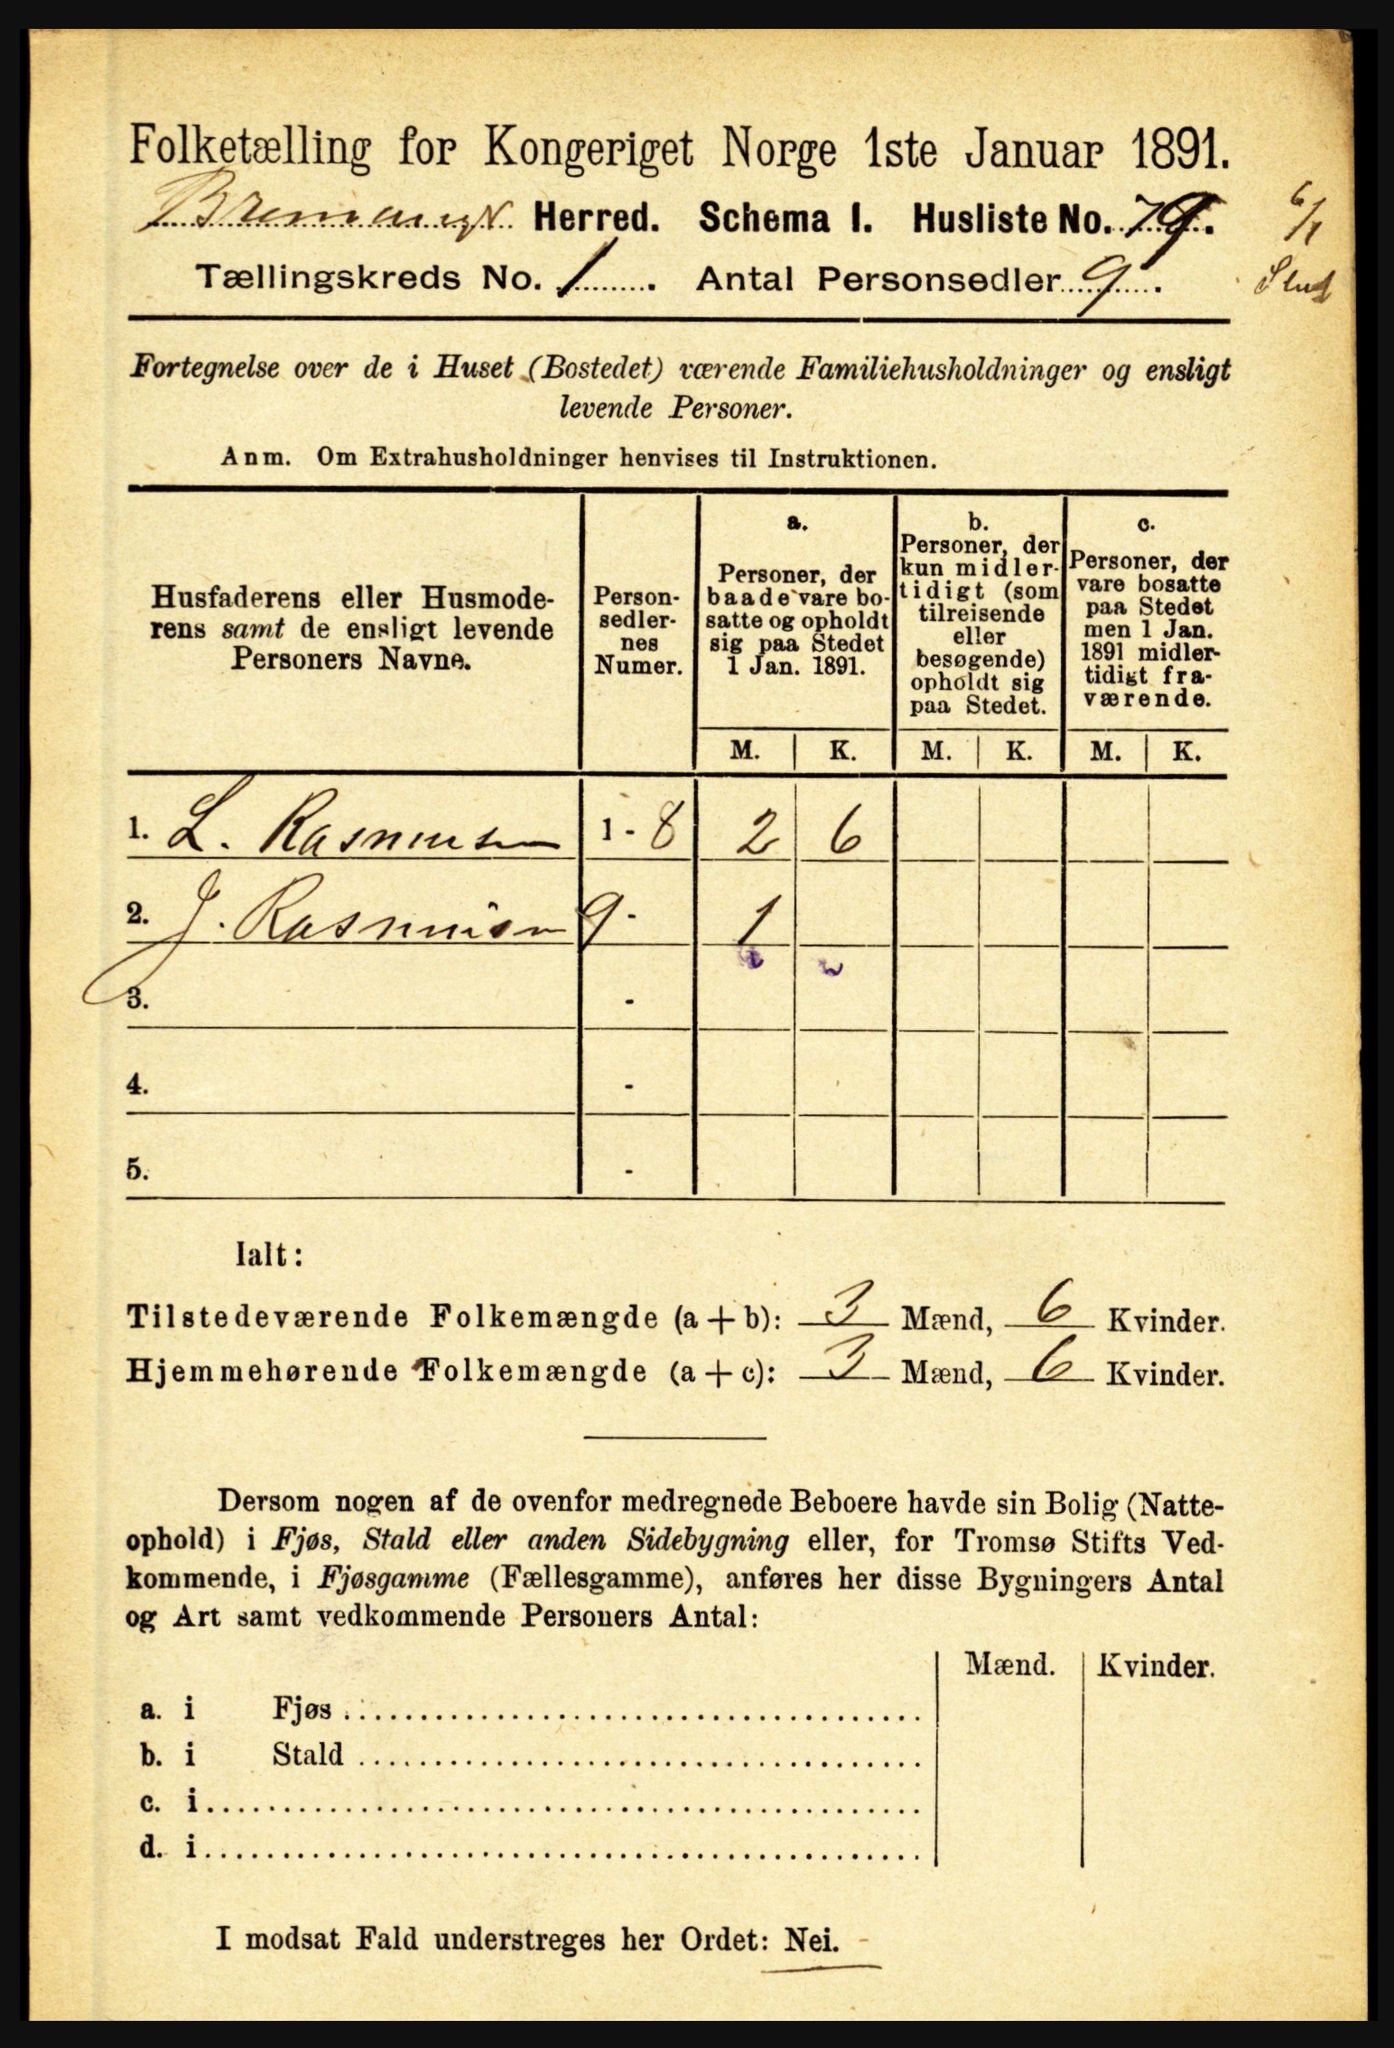 Folketælling for Kongeriget Norge 1ste Januar 1891.
Bremanger Herred. Schema I. Husliste No. 79.
6/1
Tællingskreds No. 1. Antal Personsedler 9.
Fortegnelse over de i Huset (Bostedet) værende Familiehusholdninger og ensligt
levende Personer.
Anm. Om Extrahusholdninger henvises til Instruktionen.
Husfaderens eller Husmode-
rens samt de ensligt levende
Personers Navne.
Person-
sedler-
nes
Numer.
a.
Personer, der
baade vare bo-
satte og opholdt
sig paa Stedet
1 Jan. 1891.
b.
Personer, der
kun midler-
tidigt (som
tilreisende
eller
besøgende)
opholdt sig
paa Stedet.
c.
Personer, der
vare bosatte
paa Stedet
men 1 Jan.
1891 midler-
tidigt fra-
værende.
M. K. M. K. M. K.
1. L. Rasmusen 1 - 8 2 6
2. J. Rasmusen 9 - 1
3. -
4. -
5. -
Ialt:
Tilstedeværende Folkemængde (a + b): 3 Mænd, 6 Kvinder.
Hjemmehørende Folkemængde (a + c): 3 Mænd, 6 Kvinder.
Dersom nogen af de ovenfor medregnede Beboere havde sin Bolig (Natte-
ophold) i Fjøs, Stald eller anden Sidebygning eller, for Tromsø Stifts Ved-
kommende, i Fjøsgamme (Fællesgamme), anføres her disse Bygningers Antal
og Art samt vedkommende Personers Antal:
Mænd. Kvinder.
a. i Fjøs
b. i Stald
c. i
d. i
I modsat Fald understreges her Ordet: Nei.